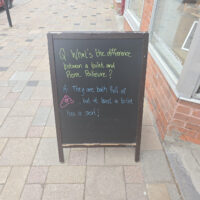 Q What's the difference
between a toilet and
Pierre Poilievre?
A. They are both full of
, but at least a toilet
has a seat!